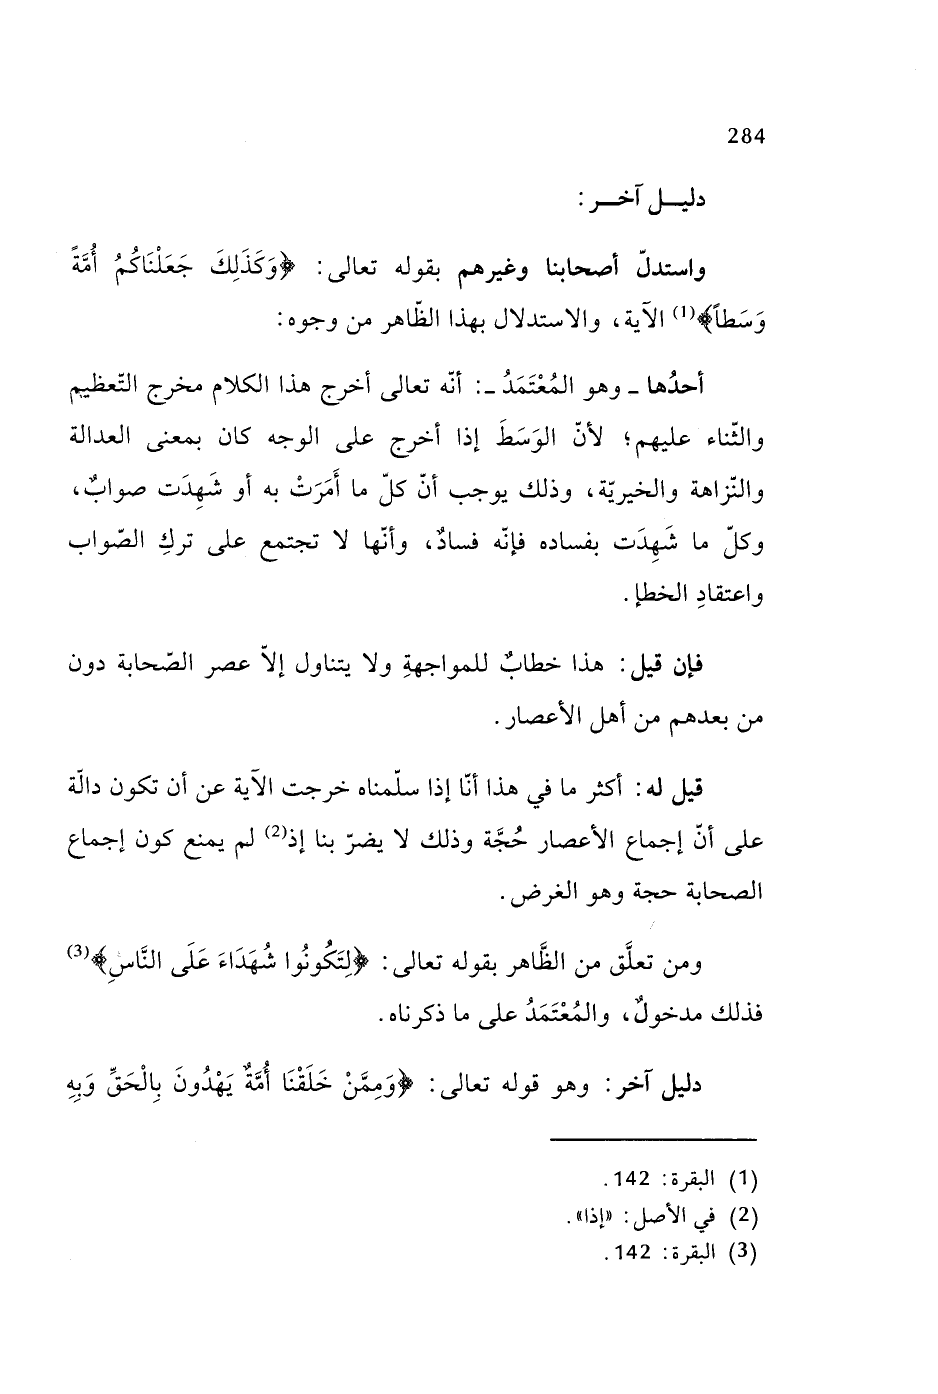 284
دليـل آخـر :
واستدلّ أصحابنا وغيرهم بقوله تعالى: ﴿وَكَذَلِكَ جَعَلْنَاكُمْ أُمَّةً
وَسَطاً﴾(1) الآية، والاستدلال بهذا الظّاهر من وجوه:
أحدُها ـ وهو المُعْتَمَدُ ـ: أنّه تعالى أخرج هذا الكلام مخرج التّعظيم
والثّناء عليهم؛ لأنّ الوَسَطَ إذا أخرج على الوجه كان بمعنى العدالة
والنّزاهة والخيريّة، وذلك يوجب أنّ كلّ ما أَمَرَتْ به أو شَهِدَت صوابٌ،
وكلّ ما شَهِدَت بفساده فإنّه فسادٌ، وأنّها لا تجتمع على تركِ الصّواب
واعتقادِ الخطإ.
فإن قيل: هذا خطابٌ للمواجهةِ ولا يتناول إلاّ عصر الصّحابة دون
من بعدهم من أهل الأعصار.
قيل له: أكثر ما في هذا أنّا إذا سلّمناه خرجت الآية عن أن تكون دالّة
على أنّ إجماع الأعصار حُجَّة وذلك لا يضرّ بنا إذ(2) لم يمنع كون إجماع
الصحابة حجة وهو الغرض.
ومن تعلَّق من الظَّاهر بقوله تعالى: ﴿لِتَكُونُوا شُهَدَاءَ عَلَى النَّاسِ﴾(3)
فذلك مدخولٌ، والمُعْتَمَدُ على ما ذكرناه.
دليل آخر: وهو قوله تعالى: ﴿وَمِمَّنْ خَلَقْنَا أُمَّةٌ يَهْدُونَ بِالْحَقِّ وَبِهِ
(1) البقرة: 142.
(2) في الأصل: «إذا».
(3) البقرة: 142.